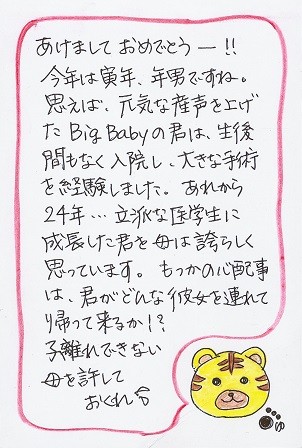 あけまして おめでとう ー!!
今年は寅年、年男ですね。
思えば、元気な産声を上げ
た Big Babyの君は、生後
間もなく入院し、大きな手術
を経験しました。あれから
24年…立派な医学生に
成長した君を母は誇らしく
思っています。もっかの心配事
は、君がどんな彼女を連れて
帰って来るか!?
子離れできない
母を許して
おくれ
ゆ